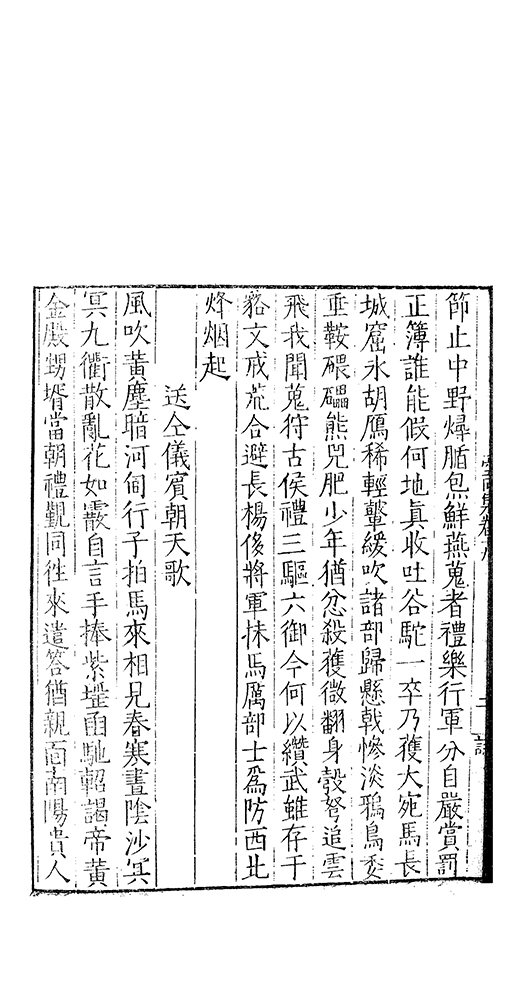 節止中野燖腯炰鮮燕蒐者禮樂行軍分自嚴賞罰
正簿誰能假何地真收吐谷駝一卒乃獲大宛馬長
城窟氷胡鴈稀輕鼙緩吹諸部歸懸戟慘淡鴉鳥委
垂鞍磈礧熊兕肥少年猶忿殺獲微翻身彀弩追雲
飛我聞蒐狩古侯禮三驅六御今何以纘武雖存于
貉文戒荒合避長楊侈將軍抹馬厲部士爲防西北
烽烟起
送仝儀賓朝天歌
風吹黃塵暗河甸行子拍馬來相見春寒晝陰沙冥
冥九衢散亂花如霰自言手捧紫墀函馳軺謁帝黃
金殿甥壻當朝禮觀同徃來遣荅猶親面南陽貴人